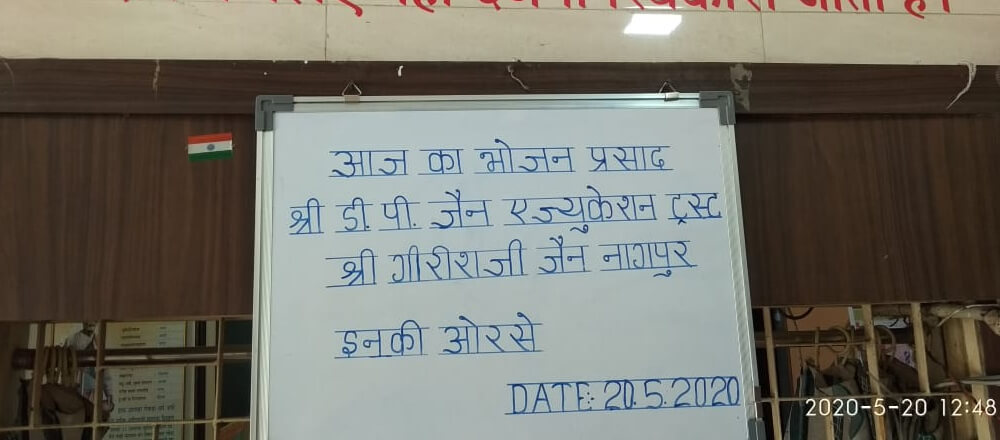 आज का भोजन प्रसाद
श्री डी. पी. जैन एज्युकेशन ट्रस्ट
श्री गीरीशजी जैन नागपुर
इनकी ओरसे
DATE: 20.5.2020
2020-5-20 12:48